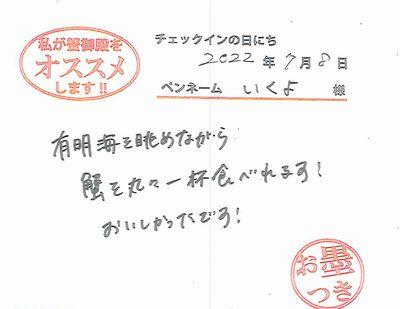 私が蟹御殿を
オススメ
します!!
チェックインの日にち
2022年7月8日
ペンネーム いくよ 様
有明海を眺めながら
蟹を丸々一杯食べれます!
おいしかったです!
お墨
つき